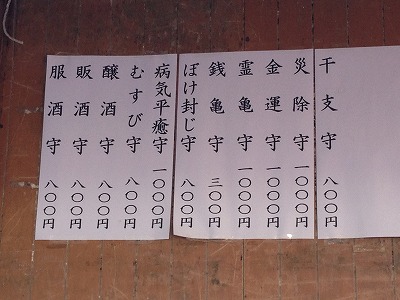 干支守 八〇〇円
災除守 一〇〇〇円
金運守 一〇〇〇円
霊亀守 一〇〇〇円
銭亀守 三〇〇円
ぼけ封じ守 八〇〇円
病気平癒守 一〇〇〇円
むすび守 八〇〇円
醸酒守 八〇〇円
販酒守 八〇〇円
服酒守 八〇〇円